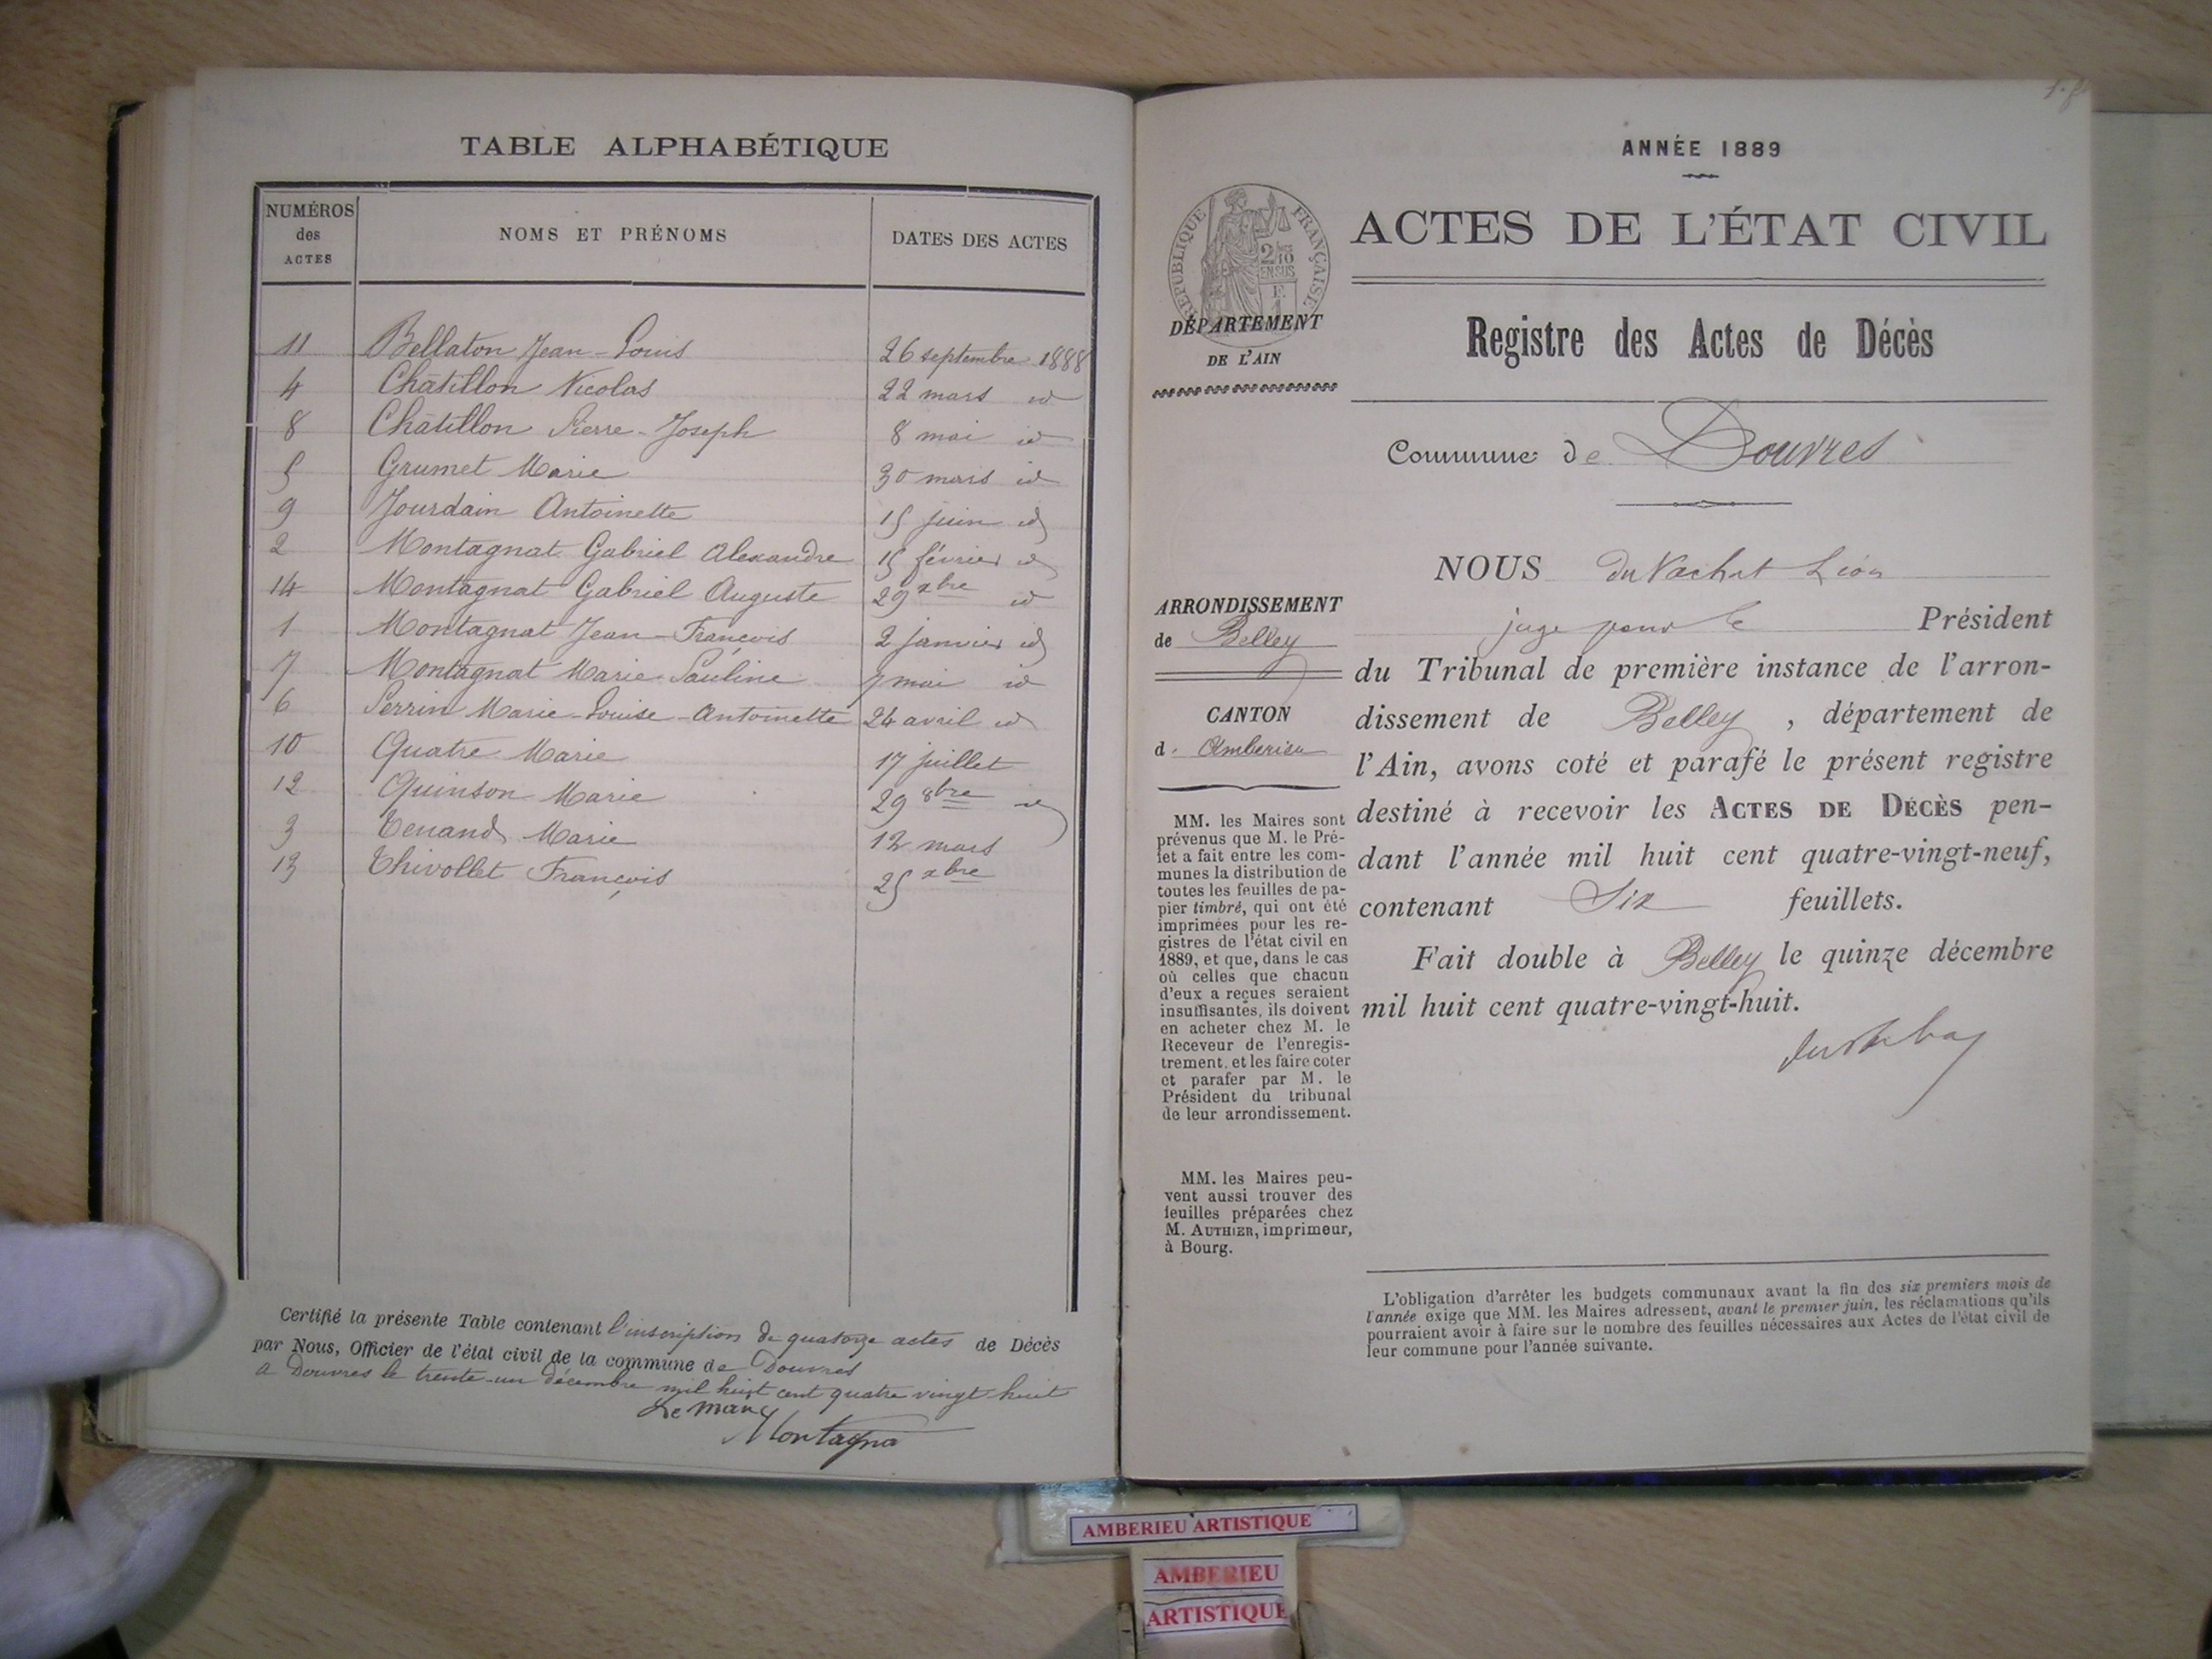 TABLE ALPHABÉTIQUE
NUMÉROS des ACTES
NOMS ET PRÉNOMS
DATES DES ACTES
11 Bellaton Jean-Louis 26 septembre 1888
4 Châtillon Nicolas 22 mars id
8 Châtillon Pierre-Joseph 8 mai id
5 Grumet Marie 30 mars id
9 Jourdain Antoinette 15 juin id
2 Montagnat Gabriel Alexandre 15 février id
14 Montagnat Gabriel Auguste 29 xbre id
1 Montagnat Jean-François 2 janvier id
7 Montagnat Marie Pauline 7 mai id
6 Perrin Marie-Louise-Antoinette 24 avril id
10 Quatre Marie 17 juillet
12 Quinson Marie 29 8bre id
3 Tenand Marie 12 mars
13 Thivollet François 25 xbre
Certifié la présente Table contenant l'inscription de quatorze actes de Décès
par Nous, Officier de l'état civil de la commune de Douvres
a Douvres le trente-un décembre mil huit cent quatre vingt-huit
Le maire
Montagna
ANNÉE 1889
RÉPUBLIQUE FRANÇAISE
2/10
EN SUS
F.
1
ACTES DE L'ÉTAT CIVIL
DÉPARTEMENT
DE L'AIN
Registre des Actes de Décès
Commune de Douvres
NOUS du Vachat Léon
juge pour le Président
ARRONDISSEMENT
de Belley
du Tribunal de première instance de l'arron-
dissement de Belley, département de
CANTON
d. Amberieu
l'Ain, avons coté et parafé le présent registre
destiné à recevoir les ACTES DE DÉCÈS pen-
dant l'année mil huit cent quatre-vingt-neuf,
contenant Six feuillets.
Fait double à Belley le quinze décembre
mil huit cent quatre-vingt-huit.
MM. les Maires sont
prévenus que M. le Pré-
fet a fait entre les com-
munes la distribution de
toutes les feuilles de pa-
pier timbré, qui ont été
imprimées pour les re-
gistres de l'état civil en
1889, et que, dans le cas
où celles que chacun
d'eux a reçues seraient
insuffisantes, ils doivent
en acheter chez M. le
Receveur de l'enregis-
trement, et les faire coter
et parafer par M. le
Président du tribunal
de leur arrondissement.
MM. les Maires peu-
vent aussi trouver des
feuilles préparées chez
M. AUTHIER, imprimeur,
à Bourg.
L'obligation d'arrêter les budgets communaux avant la fin des six premiers mois de
l'année exige que MM. les Maires adressent, avant le premier juin, les réclamations qu'ils
pourraient avoir à faire sur le nombre des feuilles nécessaires aux Actes de l'état civil de
leur commune pour l'année suivante.
AMBERIEU ARTISTIQUE
AMBERIEU
ARTISTIQUE